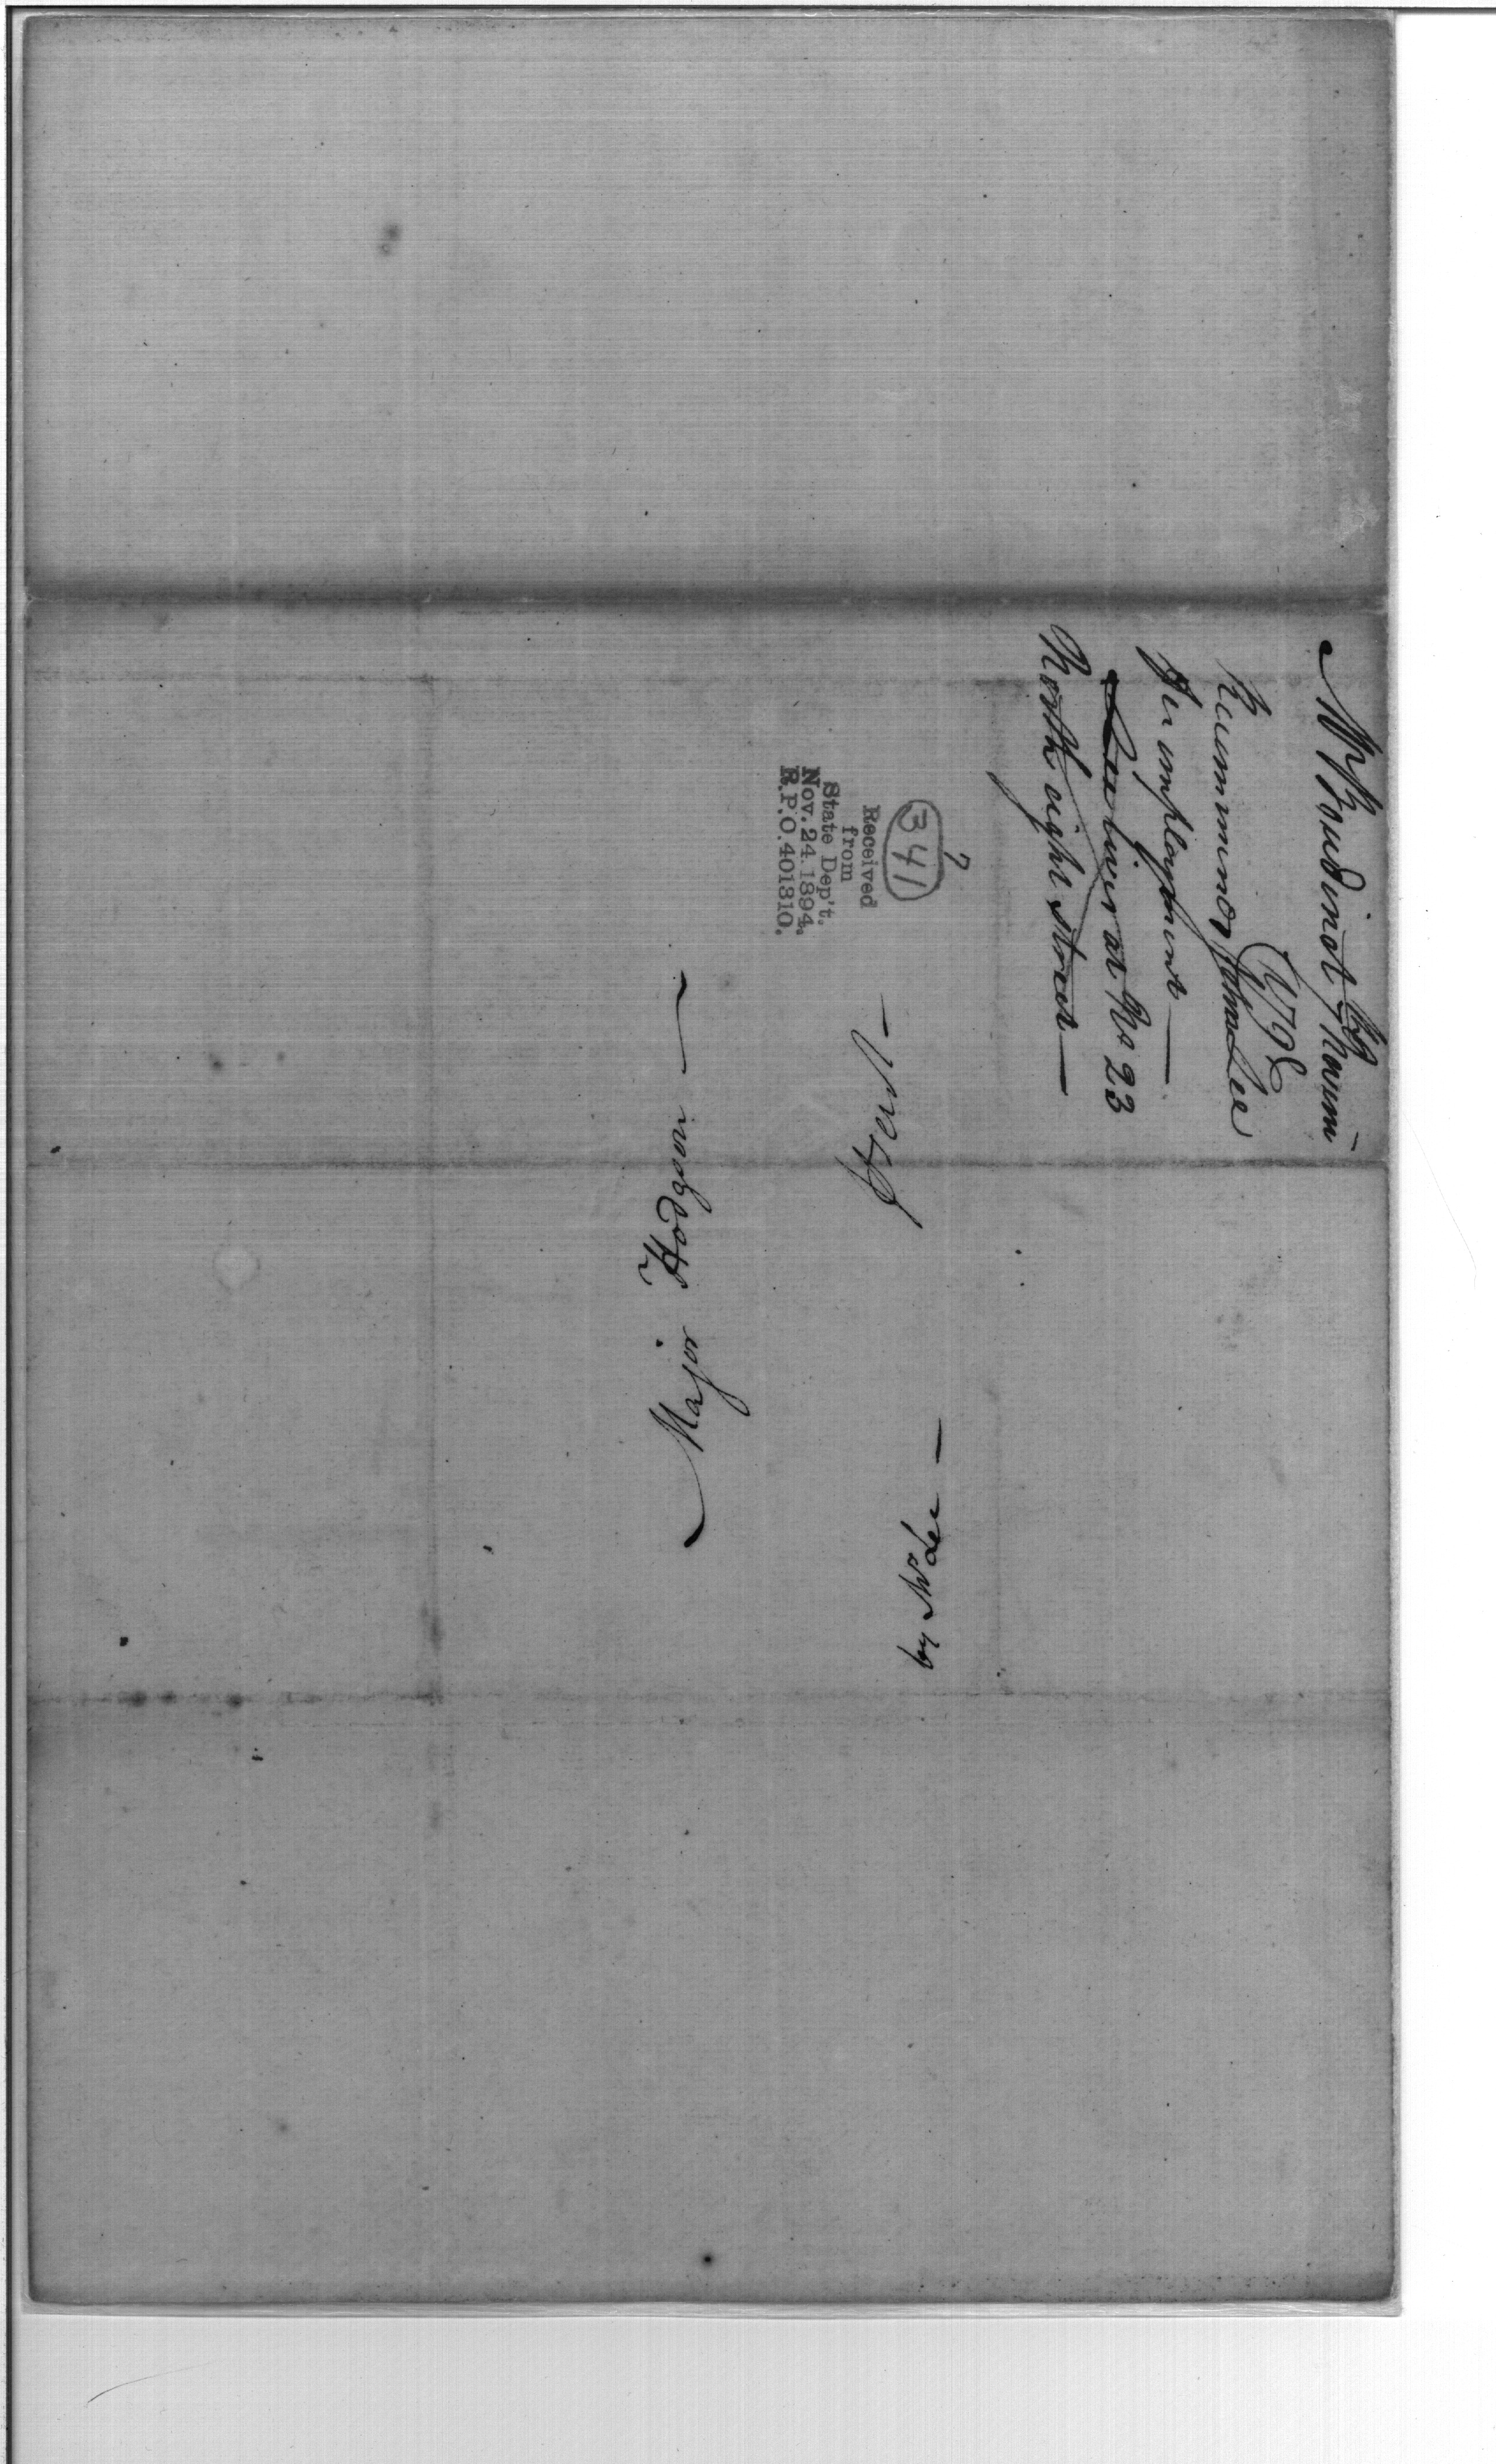 Mr Boudinot
Recommends John Lee
for employment —
Lee lives at No 23
North eight street —
341
Received
from
State Dep't.
Nov. 24. 1894.
R.P.O. 401310.
Major Hodgson —
Present —
by Mr Lee —